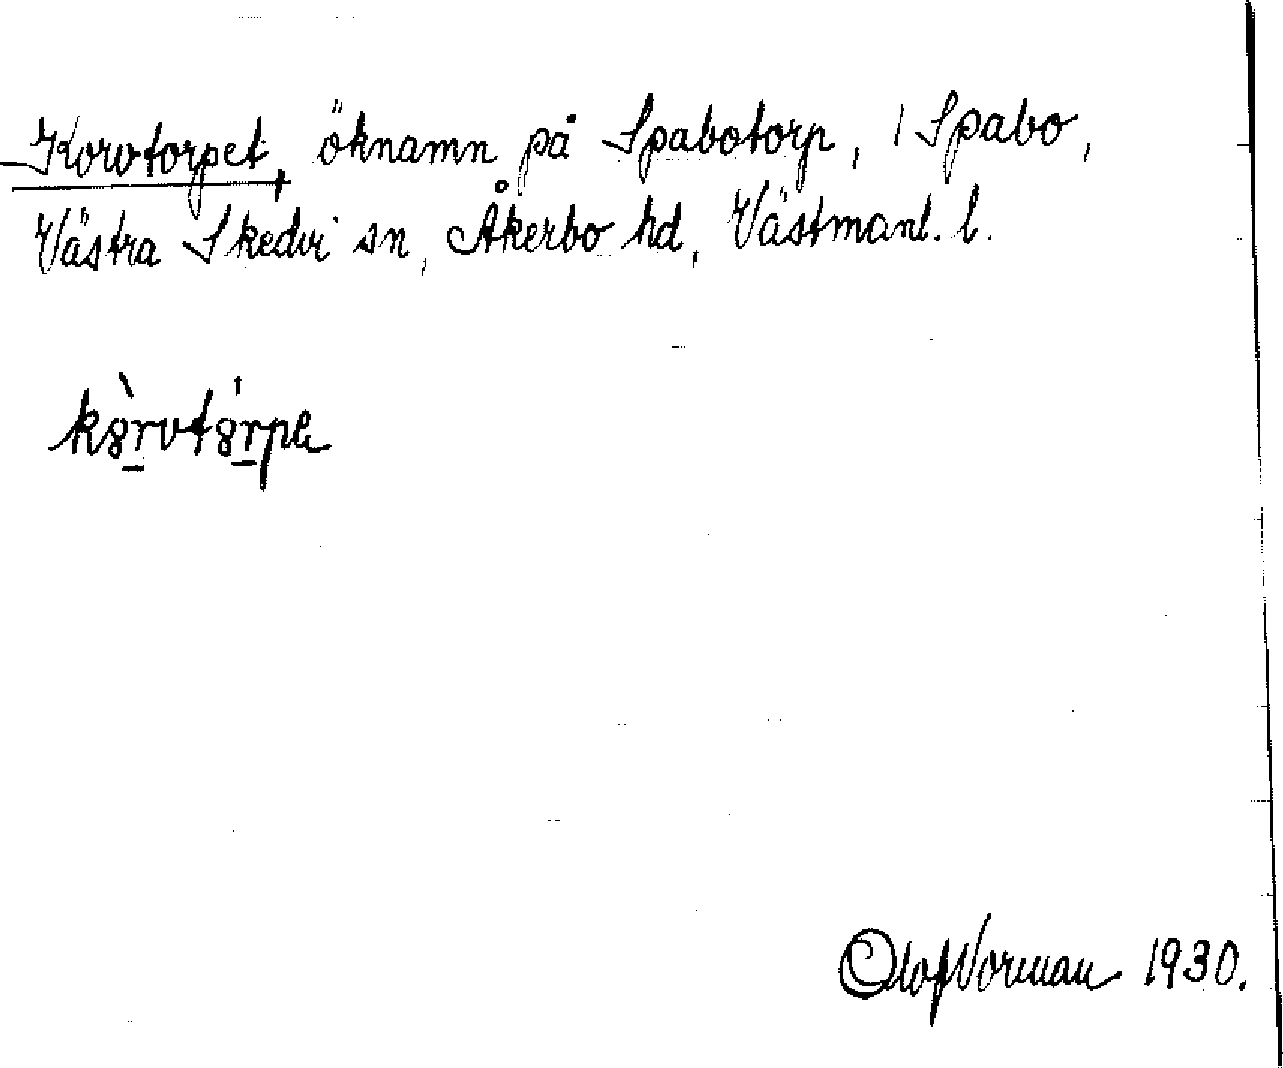 Korvtorpet, öknamn på Spabotorp, 1 Spabo,
Västra Skedvi sn, Åkerbo hd, Västmanl. l.
kòrvtórpe
Olof Norman 1930.